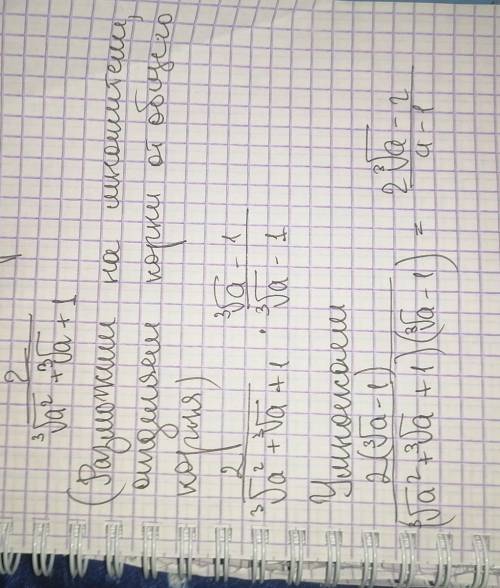 2/(∛a² + ∛a + 1)
(Разложим на множители,
отделяем корни от общего
корня)
2/(∛a² + ∛a + 1) · (∛a - 1)/(∛a - 1)
Умножаем
2(∛a - 1)/((∛a² + ∛a + 1)(∛a - 1)) = (2∛a - 2)/(a - 1)